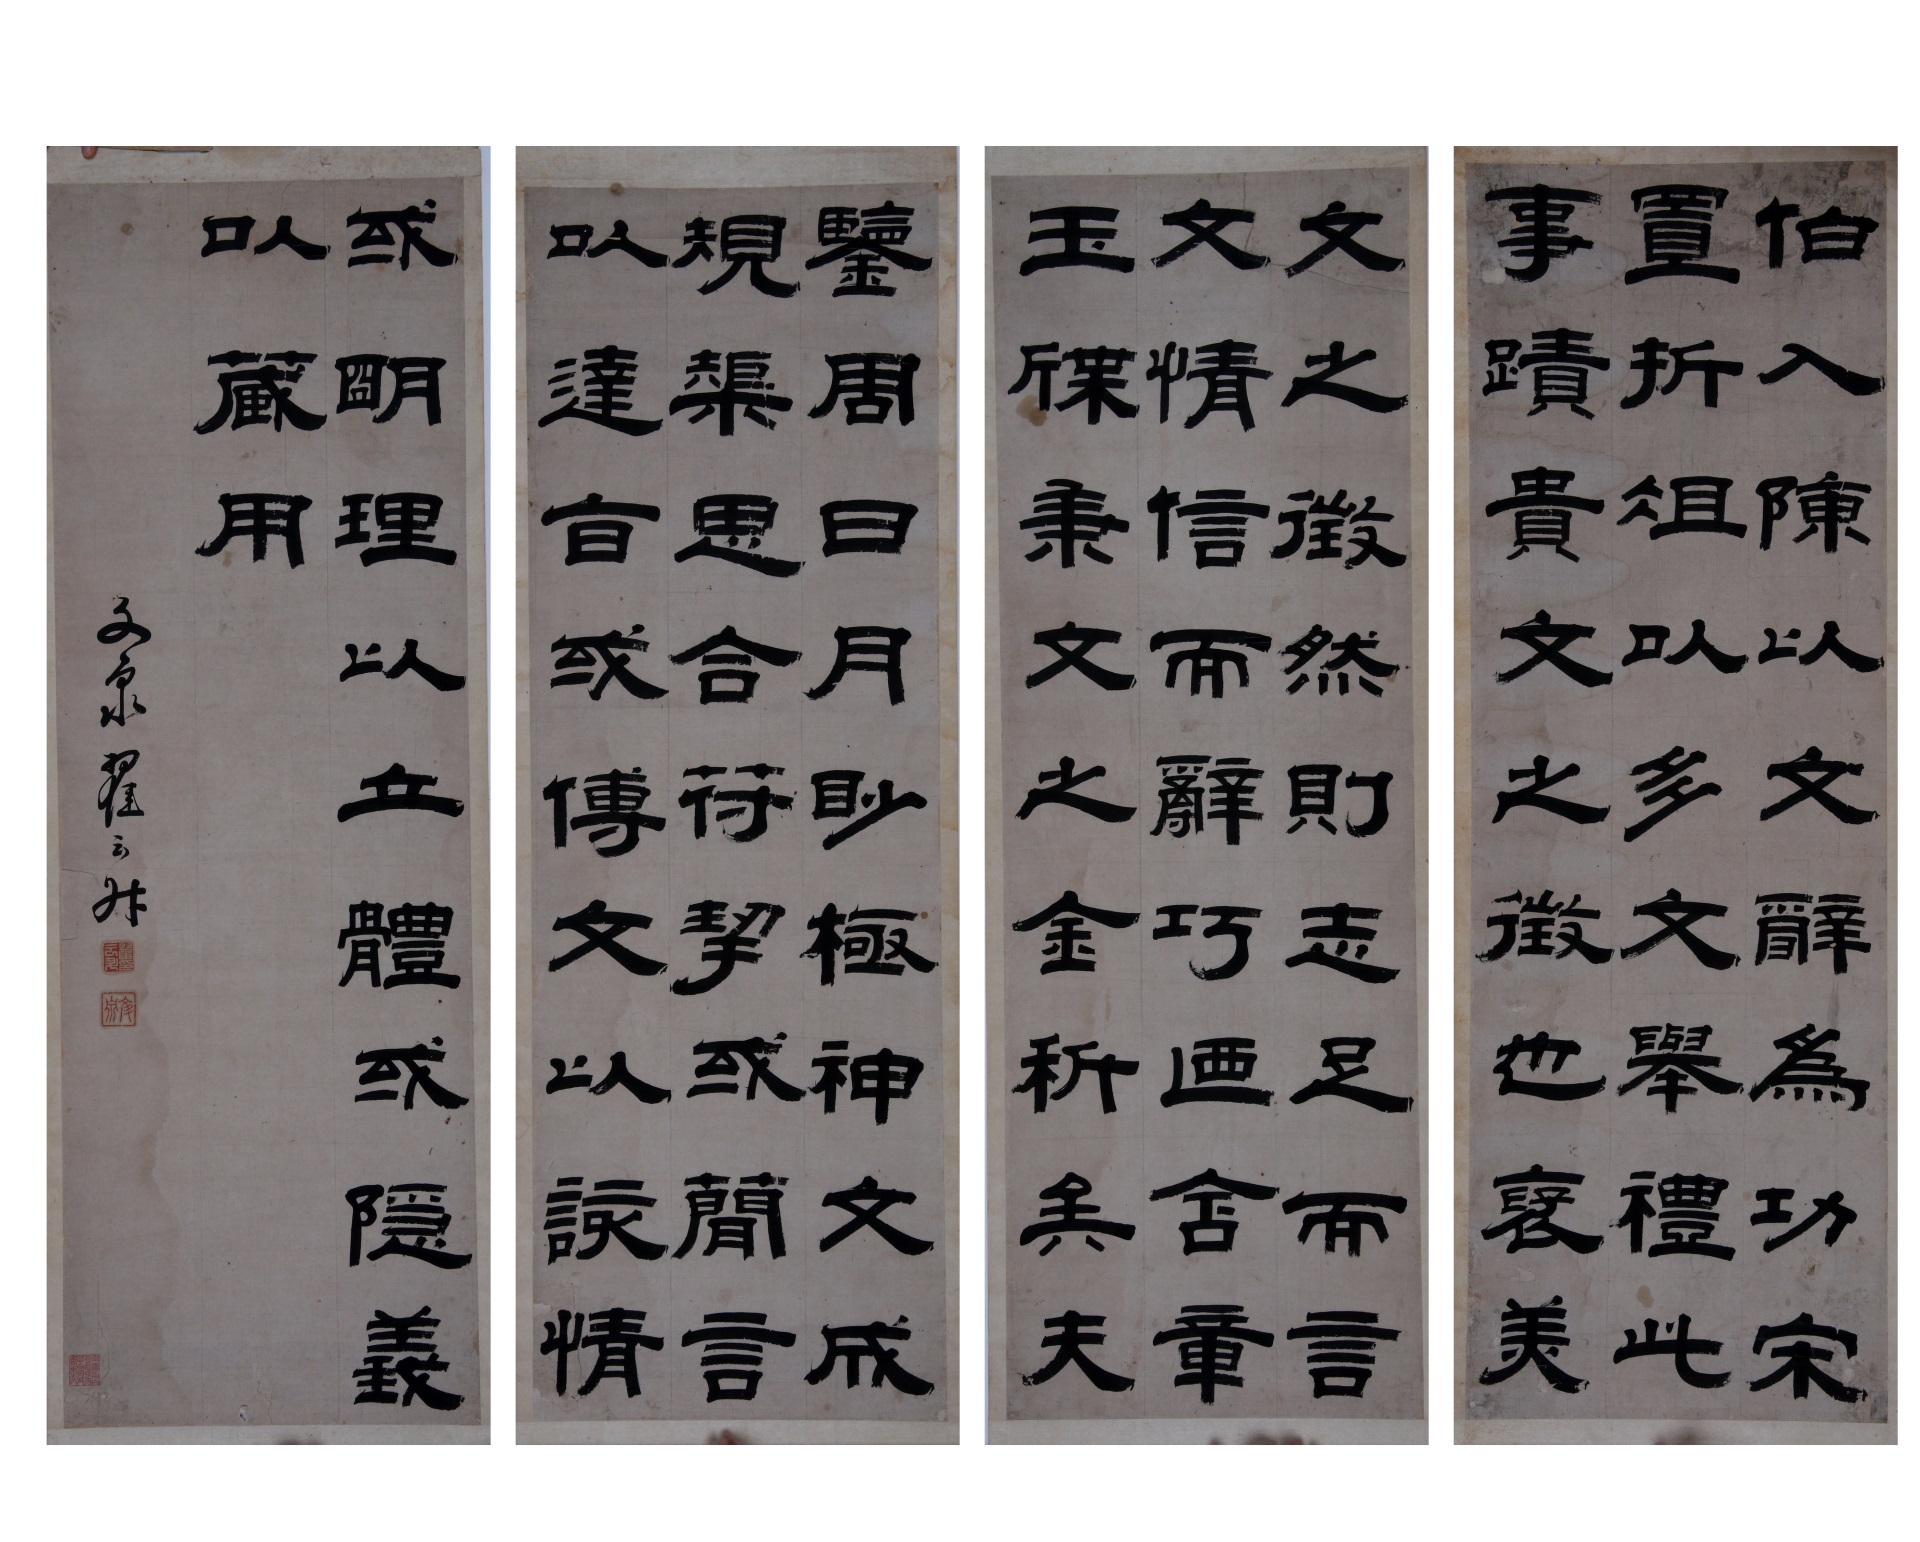 伯入陳以文辭爲功宋
置折俎以多文舉禮此
事蹟貴文之徵也褒美
文之徵然則志足而言
文情信而辭巧迺舍章
玉牒秉文之金科矣夫
鑒周日月眇極神文成
規榘思合符挈或簡言
以達旨或傳文以詠情
或朙理以立體或隱義
以藏用
文泉翟云升